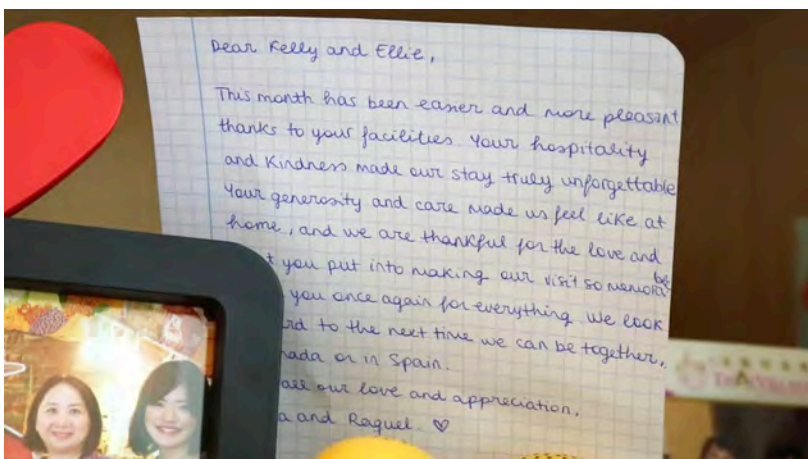 Dear Kelly and Ellie,
This month has been easier and more pleasant
thanks to your facilities. Your hospitality
and Kindness made our stay truly unforgettable
Your generosity and care made us feel like at
home, and we are thankful for the love and
you put into making our visit so memorable
you once again for everything. We look
to the next time we can be together,
or in Spain.
all our love and appreciation.
and Raquel. ♡